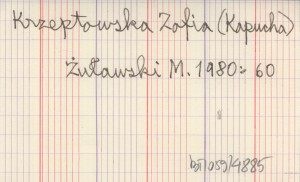 Krzeptowska Zofia (Kapucha)
Żuławski M. 1980: 60